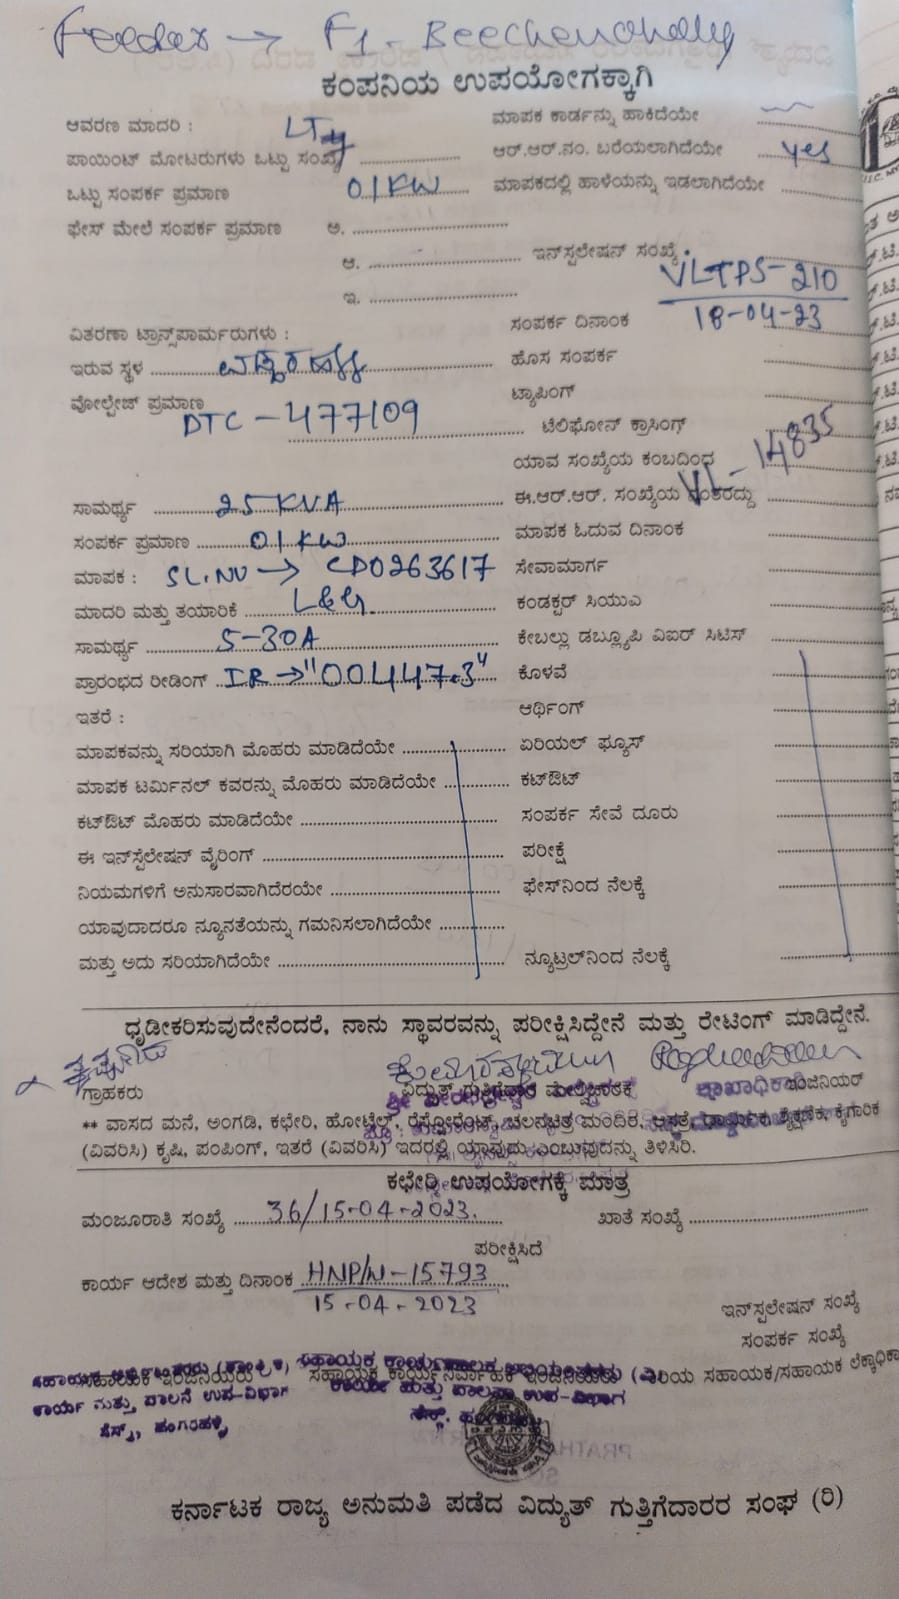 Feeder → F1 - Beechenahally
ಕಂಪನಿಯ ಉಪಯೋಗಕ್ಕಾಗಿ
ಆವರಣ ಮಾದರಿ : LT
ಮಾಪಕ ಕಾರ್ಡನ್ನು ಹಾಕಿದೆಯೇ
ಪಾಯಿಂಟ್ ಮೋಟರುಗಳು ಒಟ್ಟು ಸಂಖ್ಯೆ
ಆರ್.ಆರ್.ನಂ. ಬರೆಯಲಾಗಿದೆಯೇ yes
ಒಟ್ಟು ಸಂಪರ್ಕ ಪ್ರಮಾಣ 01KW
ಮಾಪಕದಲ್ಲಿ ಹಾಳೆಯನ್ನು ಇಡಲಾಗಿದೆಯೇ
ಫೇಸ್ ಮೇಲೆ ಸಂಪರ್ಕ ಪ್ರಮಾಣ ಅ.
ಆ. ಇನ್‌ಸ್ಟಲೇಷನ್ ಸಂಖ್ಯೆ
VLTPS-210
ಇ.
ಸಂಪರ್ಕ ದಿನಾಂಕ 18-04-23
ವಿತರಣಾ ಟ್ರಾನ್ಸ್‌ಪಾರ್ಮರುಗಳು :
ಇರುವ ಸ್ಥಳ
ಹೊಸ ಸಂಪರ್ಕ
ವೋಲ್ಟೇಜ್ ಪ್ರಮಾಣ
ಟ್ಯಾಪಿಂಗ್
DTC - 477109
ಟೆಲಿಫೋನ್ ಕ್ರಾಸಿಂಗ್
ಯಾವ ಸಂಖ್ಯೆಯ ಕಂಬದಿಂದ VL-14835
ಸಾಮರ್ಥ್ಯ 25 KVA
ಈ.ಆರ್.ಆರ್. ಸಂಖ್ಯೆಯ ನಂತರದ್ದು
ಸಂಪರ್ಕ ಪ್ರಮಾಣ 01 KW
ಮಾಪಕ ಓದುವ ದಿನಾಂಕ
ಮಾಪಕ : SL.NO → CD0263617
ಸೇವಾಮಾರ್ಗ
ಮಾದರಿ ಮತ್ತು ತಯಾರಿಕೆ L&G
ಕಂಡಕ್ಟರ್ ಸಿಯುಎ
ಸಾಮರ್ಥ್ಯ 5-30A
ಕೇಬಲ್ಲು ಡಬ್ಲ್ಯೂಪಿ ವಿಐಆರ್ ಸಿಟಿಸ್
ಪ್ರಾರಂಭದ ರೀಡಿಂಗ್ IR → "00447.3"
ಕೊಳವೆ
ಇತರೆ :
ಆರ್ಥಿಂಗ್
ಮಾಪಕವನ್ನು ಸರಿಯಾಗಿ ಮೊಹರು ಮಾಡಿದೆಯೇ
ಏರಿಯಲ್ ಫ್ಯೂಸ್
ಮಾಪಕ ಟರ್ಮಿನಲ್ ಕವರನ್ನು ಮೊಹರು ಮಾಡಿದೆಯೇ
ಕಟ್‌ಔಟ್
ಕಟ್‌ಔಟ್ ಮೊಹರು ಮಾಡಿದೆಯೇ
ಸಂಪರ್ಕ ಸೇವೆ ದೂರು
ಈ ಇನ್‌ಸ್ಪೆಲೇಷನ್ ವೈರಿಂಗ್
ಪರೀಕ್ಷೆ
ನಿಯಮಗಳಿಗೆ ಅನುಸಾರವಾಗಿದೆರಯೇ
ಫೇಸ್‌ನಿಂದ ನೆಲಕ್ಕೆ
ಯಾವುದಾದರೂ ನ್ಯೂನತೆಯನ್ನು ಗಮನಿಸಲಾಗಿದೆಯೇ
ಮತ್ತು ಅದು ಸರಿಯಾಗಿದೆಯೇ
ನ್ಯೂಟ್ರಲ್‌ನಿಂದ ನೆಲಕ್ಕೆ
ಧೃಡೀಕರಿಸುವುದೇನೆಂದರೆ, ನಾನು ಸ್ಥಾವರವನ್ನು ಪರೀಕ್ಷಿಸಿದ್ದೇನೆ ಮತ್ತು ರೇಟಿಂಗ್ ಮಾಡಿದ್ದೇನೆ.
ಗ್ರಾಹಕರು ವಿದ್ಯುತ್ ಗುತ್ತಿಗೆದಾರ ಶಾಖಾಧಿಕಾರಿ ಇಂಜಿನಿಯರ್
** ವಾಸದ ಮನೆ, ಅಂಗಡಿ, ಕಛೇರಿ, ಹೋಟೆಲ್, ರೆಸ್ಟೋರೆಂಟ್, ಚಲನಚಿತ್ರ ಮಂದಿರ, ಆಸ್ಪತ್ರೆ, ಧಾರ್ಮಿಕ, ಶೈಕ್ಷಣಿಕ, ಕೈಗಾರಿಕ
(ವಿವರಿಸಿ) ಕೃಷಿ, ಪಂಪಿಂಗ್, ಇತರೆ (ವಿವರಿಸಿ) ಇದರಲ್ಲಿ ಯಾವುದು ಎಂಬುವುದನ್ನು ತಿಳಿಸಿರಿ.
ಕಛೇರಿ ಉಪಯೋಗಕ್ಕೆ ಮಾತ್ರ
ಮಂಜೂರಾತಿ ಸಂಖ್ಯೆ 36/15-04-2023.
ಖಾತೆ ಸಂಖ್ಯೆ
ಪರೀಕ್ಷಿಸಿದೆ
ಕಾರ್ಯ ಆದೇಶ ಮತ್ತು ದಿನಾಂಕ HNP/N-15793
15-04-2023
ಇನ್‌ಸ್ಪಲೇಷನ್ ಸಂಖ್ಯೆ
ಸಂಪರ್ಕ ಸಂಖ್ಯೆ
ಸಹಾಯಕ ಇಂಜಿನಿಯರು ಸಹಾಯಕ ಕಾರ್ಯನಿರ್ವಾಹಕ ಇಂಜಿನಿಯರು ಹಿರಿಯ ಸಹಾಯಕ/ಸಹಾಯಕ ಲೆಕ್ಕಾಧಿಕಾ
ಕಾರ್ಯ ಮತ್ತು ಪಾಲನೆ ಉಪ-ವಿಭಾಗ ಕಾರ್ಯ ಮತ್ತು ಪಾಲನಾ ಉಪ-ವಿಭಾಗ
ಕರ್ನಾಟಕ ರಾಜ್ಯ ಅನುಮತಿ ಪಡೆದ ವಿದ್ಯುತ್ ಗುತ್ತಿಗೆದಾರರ ಸಂಘ (ರಿ)